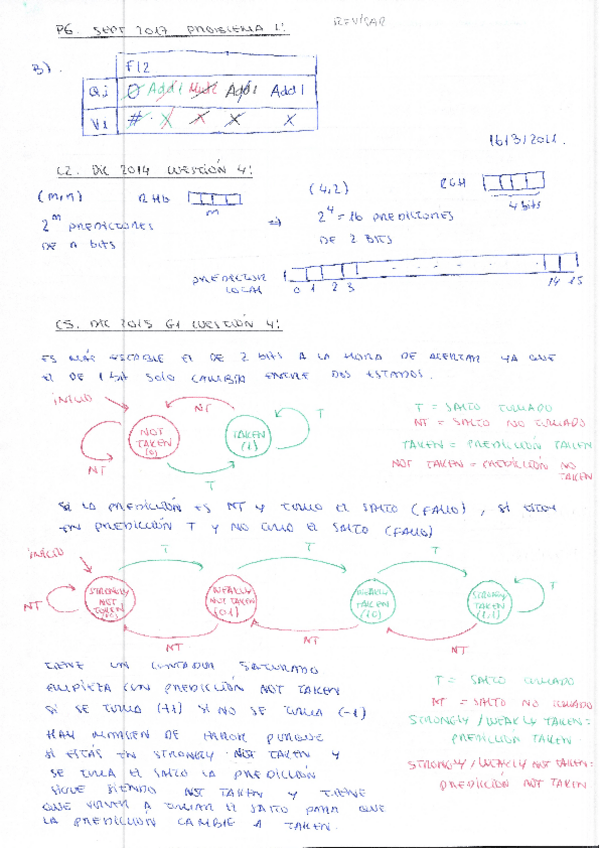 P6. SEPT 2017 PROBLEMA 1:
REVISAR
3).
F12
Qi Ø Add1 Mult Add1 Add1
Vi # X X X X
16/3/2022.
C2. DIC 2014 CUESTIÓN 4:
(m,n) RHG
m
2^m PREDICTORES
DE n BITS
=>
(4,2) RGH
4 bits
2^4 = 16 PREDICTORES
DE 2 BITS
PREDICTOR
LOCAL
0 1 2 3 14 15
C5. DIC 2015 G1 CUESTIÓN 4:
ES MÁS FLEXIBLE EL DE 2 BITS A LA HORA DE ACERTAR YA QUE
EL DE 1 bit SOLO CAMBIA ENTRE DOS ESTADOS.
INICIO
NT
NOT
TAKEN
(0)
TAKEN
(1)
T
NT
T
T = SALTO TOMADO
NT = SALTO NO TOMADO
TAKEN = PREDICCIÓN TAKEN
NOT TAKEN = PREDICCIÓN NO
TAKEN
SI LA PREDICCIÓN ES NT Y TOMO EL SALTO (FALLO), SI ESTOY
EN PREDICCIÓN T Y NO TOMO EL SALTO (FALLO)
INICIO
T
T
T
NT
STRONGLY
NOT
TAKEN
(00)
WEAKLY
NOT TAKEN
(01)
WEAKLY
TAKEN
(10)
STRONGLY
TAKEN
(11)
T
NT
NT
NT
TIENE UN CONTADOR SATURADO.
EMPIEZA CON PREDICCIÓN NOT TAKEN
SI SE TOMA (+1) SI NO SE TOMA (-1)
HAY MARGEN DE ERROR PORQUE
SI ESTÁS EN STRONGLY NOT TAKEN Y
SE TOMA EL SALTO LA PREDICCIÓN
SIGUE SIENDO NOT TAKEN Y TIENE
QUE VOLVER A TOMAR EL SALTO PARA QUE
LA PREDICCIÓN CAMBIE A TAKEN.
T = SALTO TOMADO
NT = SALTO NO TOMADO
STRONGLY / WEAKLY TAKEN:
PREDICCIÓN TAKEN.
STRONGLY / WEAKLY NOT TAKEN:
PREDICCIÓN NOT TAKEN